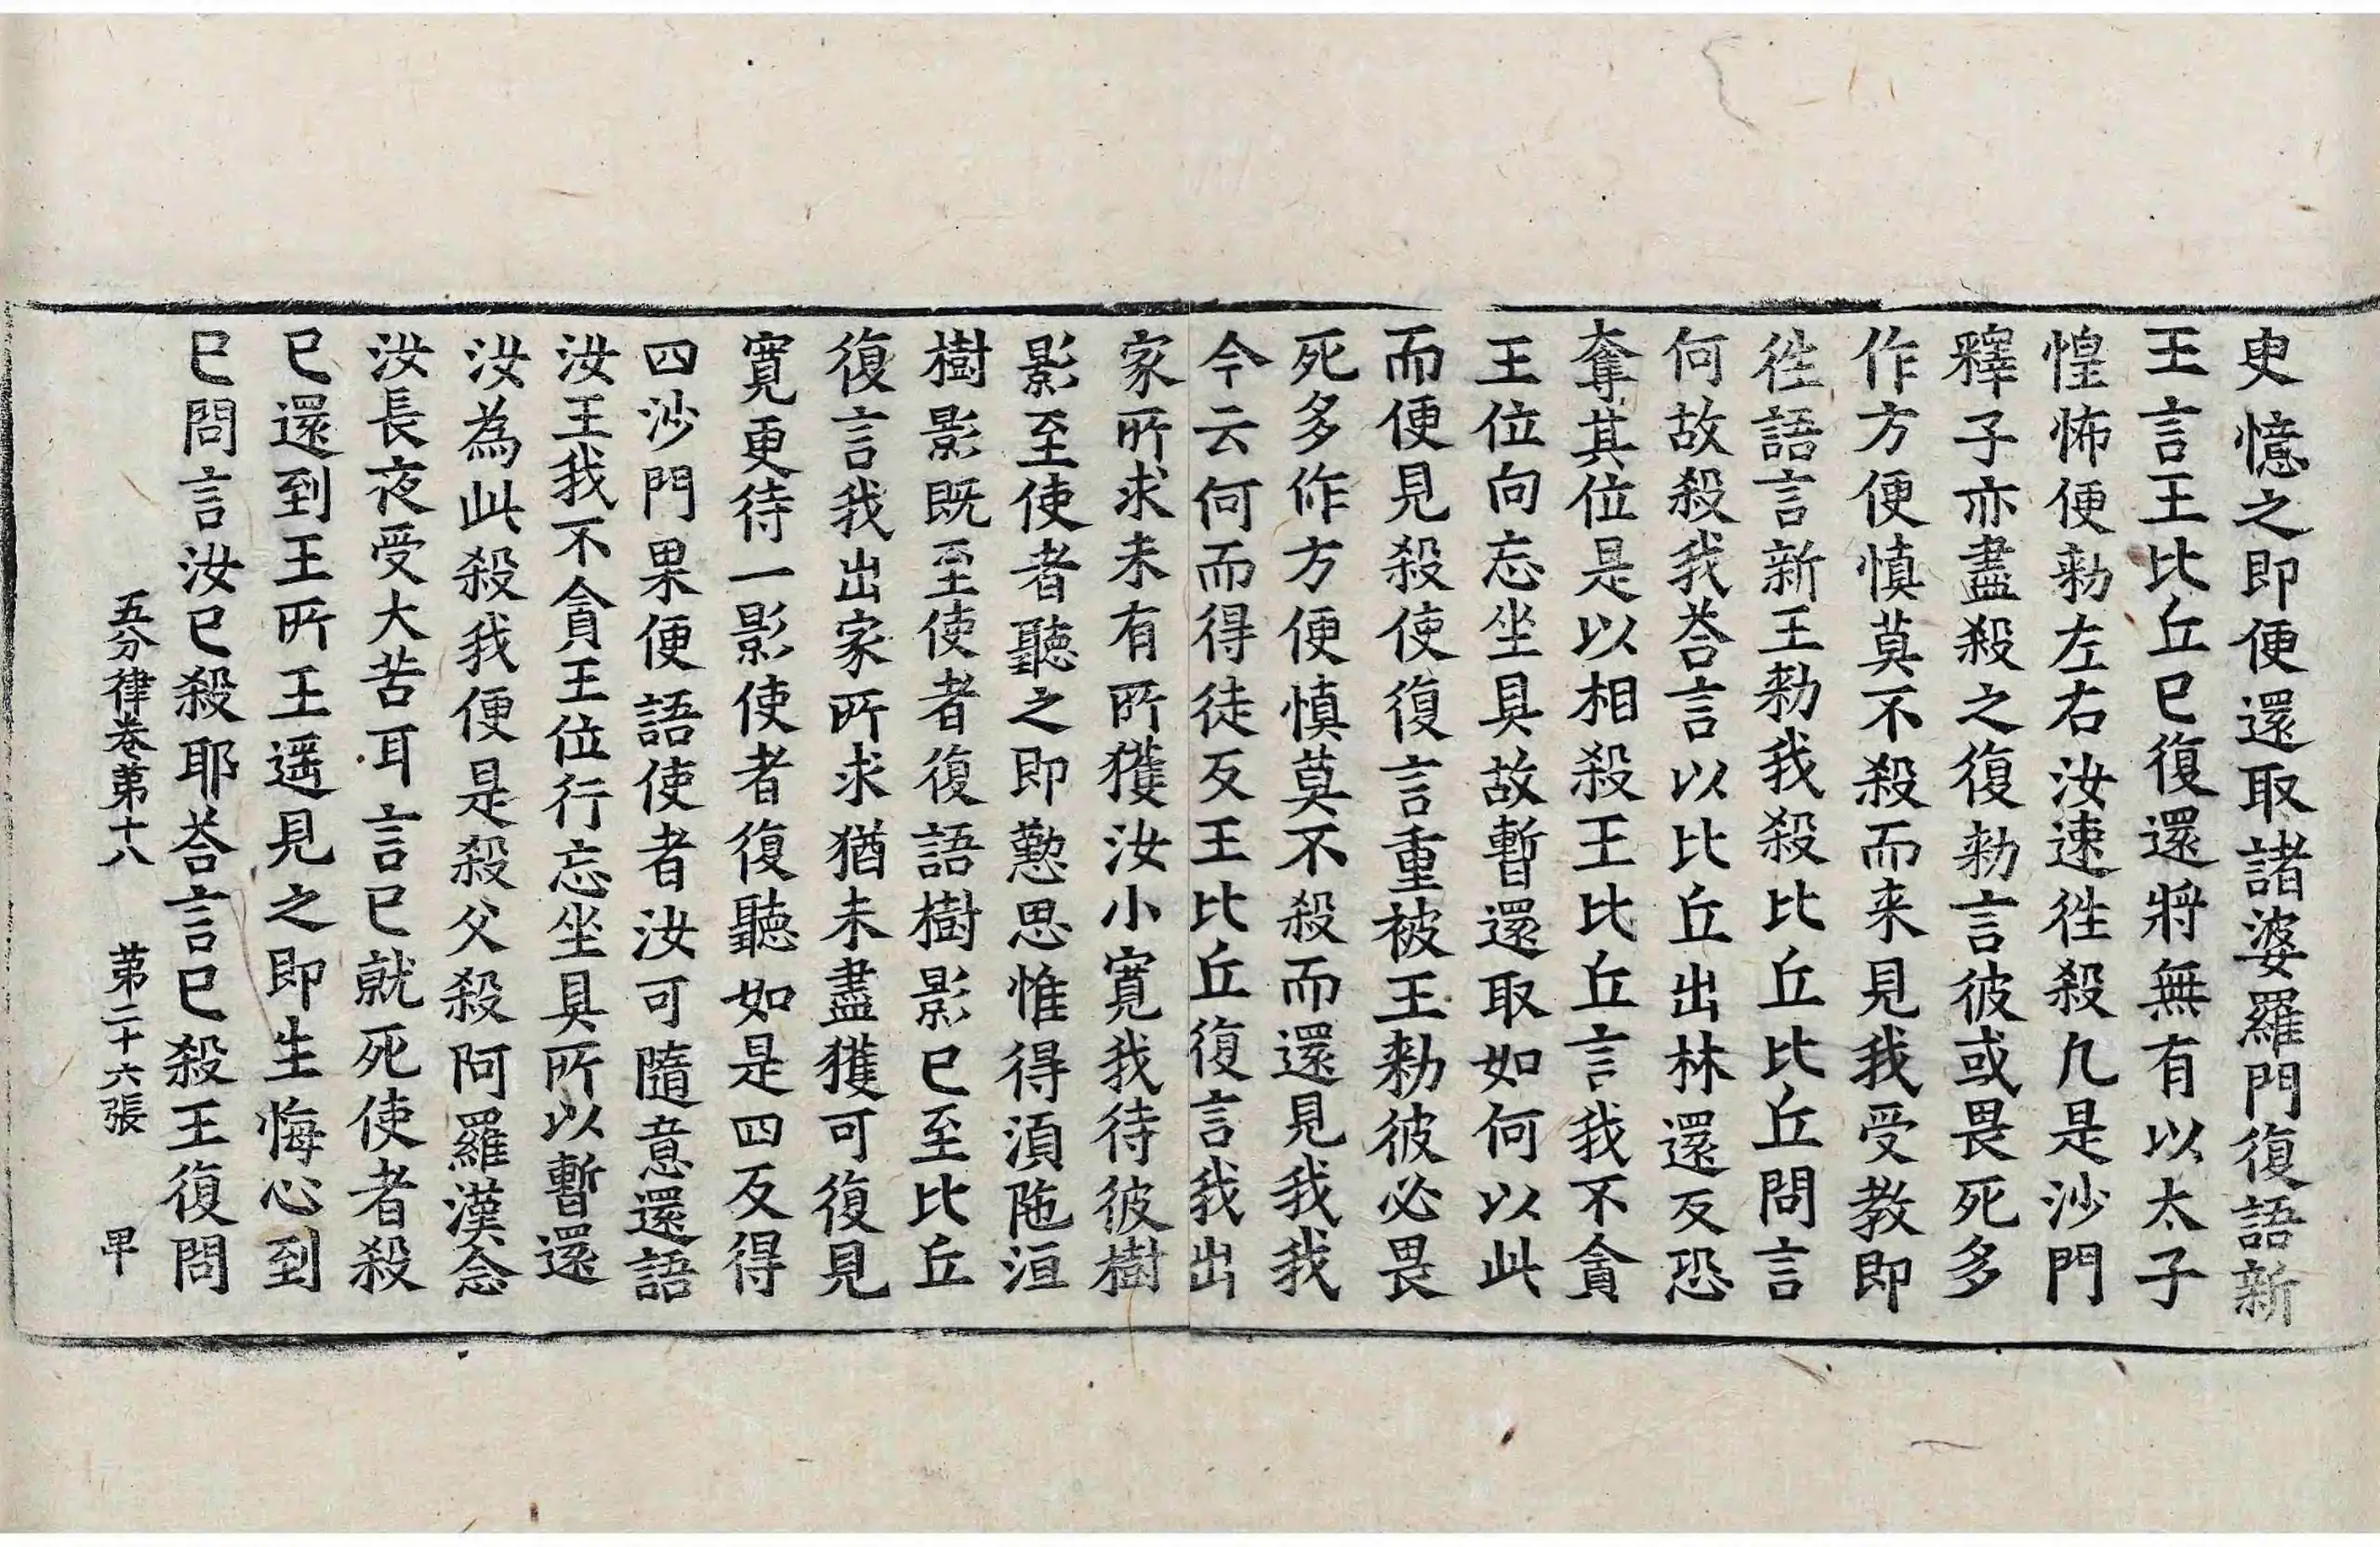 㕜憶之即便還取諸婆羅門復語新
王言王比丘已復還將無有以太子
惶怖便勑左右汝速徃殺凡是沙門
釋子亦盡殺之復勑言彼或畏死多
作方便慎莫不殺而来見我受教即
徃語言新王勑我殺比丘比丘問言
何故殺我荅言以比丘出林還反恐
奪其位是以相殺王比丘言我不貪
王位向忘坐具故暫還取如何以此
而便見殺使復言重被王勑彼必畏
死多作方便慎莫不殺而還見我我
今云何而得徒反王比丘復言我出
家所求未有所獲汝小寛我待彼樹
影至使者聽之即懃思惟得湏陁洹
樹影既至使者復語樹影已至比丘
復言我出家所求猶未盡獲可復見
寛更待一影使者復聽如是四反得
四沙門果便語使者汝可隨意還語
汝王我不貪王位行忘坐具所以暫還
汝為此殺我便是殺父殺阿羅漢念
汝長夜受大苦耳言已就死使者殺
已還到王所王遥見之即生悔心到
已問言汝已殺耶荅言已殺王復問
五分律卷第十八　第二十六張　甲